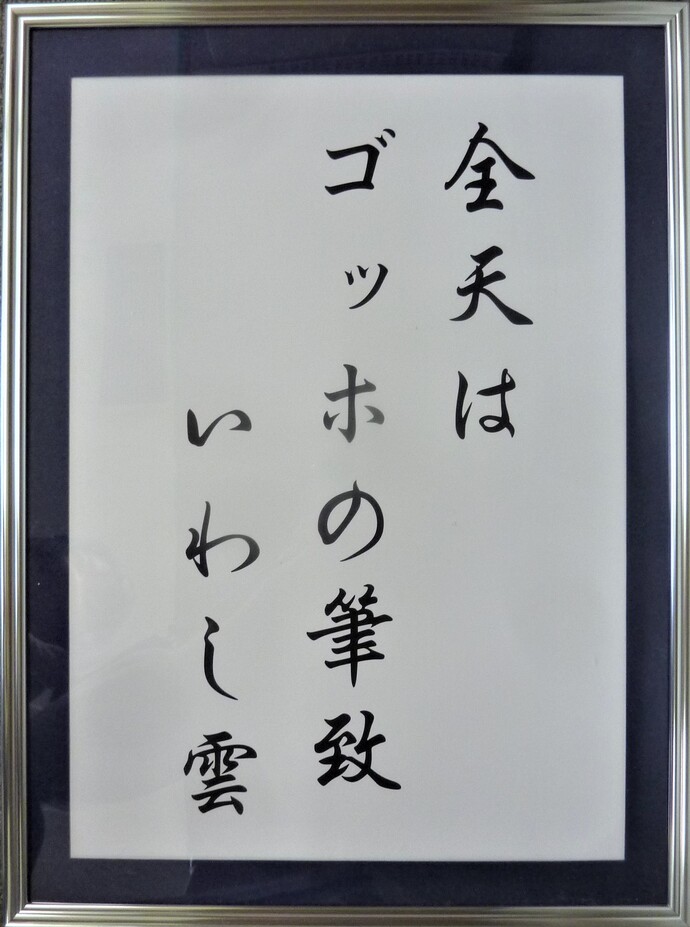 全天は
ゴッホの筆致
いわし雲